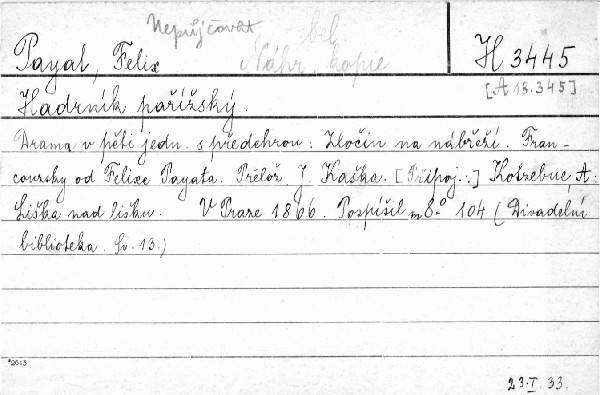 Nepůjčovat
bel.
Náhr. kopie
Payat, Felix
H 3445
[A 15.345]
Hadrník pařížský.
Drama v pěti jedn. s předehrou: Zločin na nábřeží. Fran-
couzsky od Felixe Payata. Přelož. J. Kaška. [Připoj.:] Kotzebue, A:
Liška nad lišku. V Praze 1866. Pospíšil m8° 104 (Divadelní
biblioteka. Sv. 13.)
*2013
23.I.33.